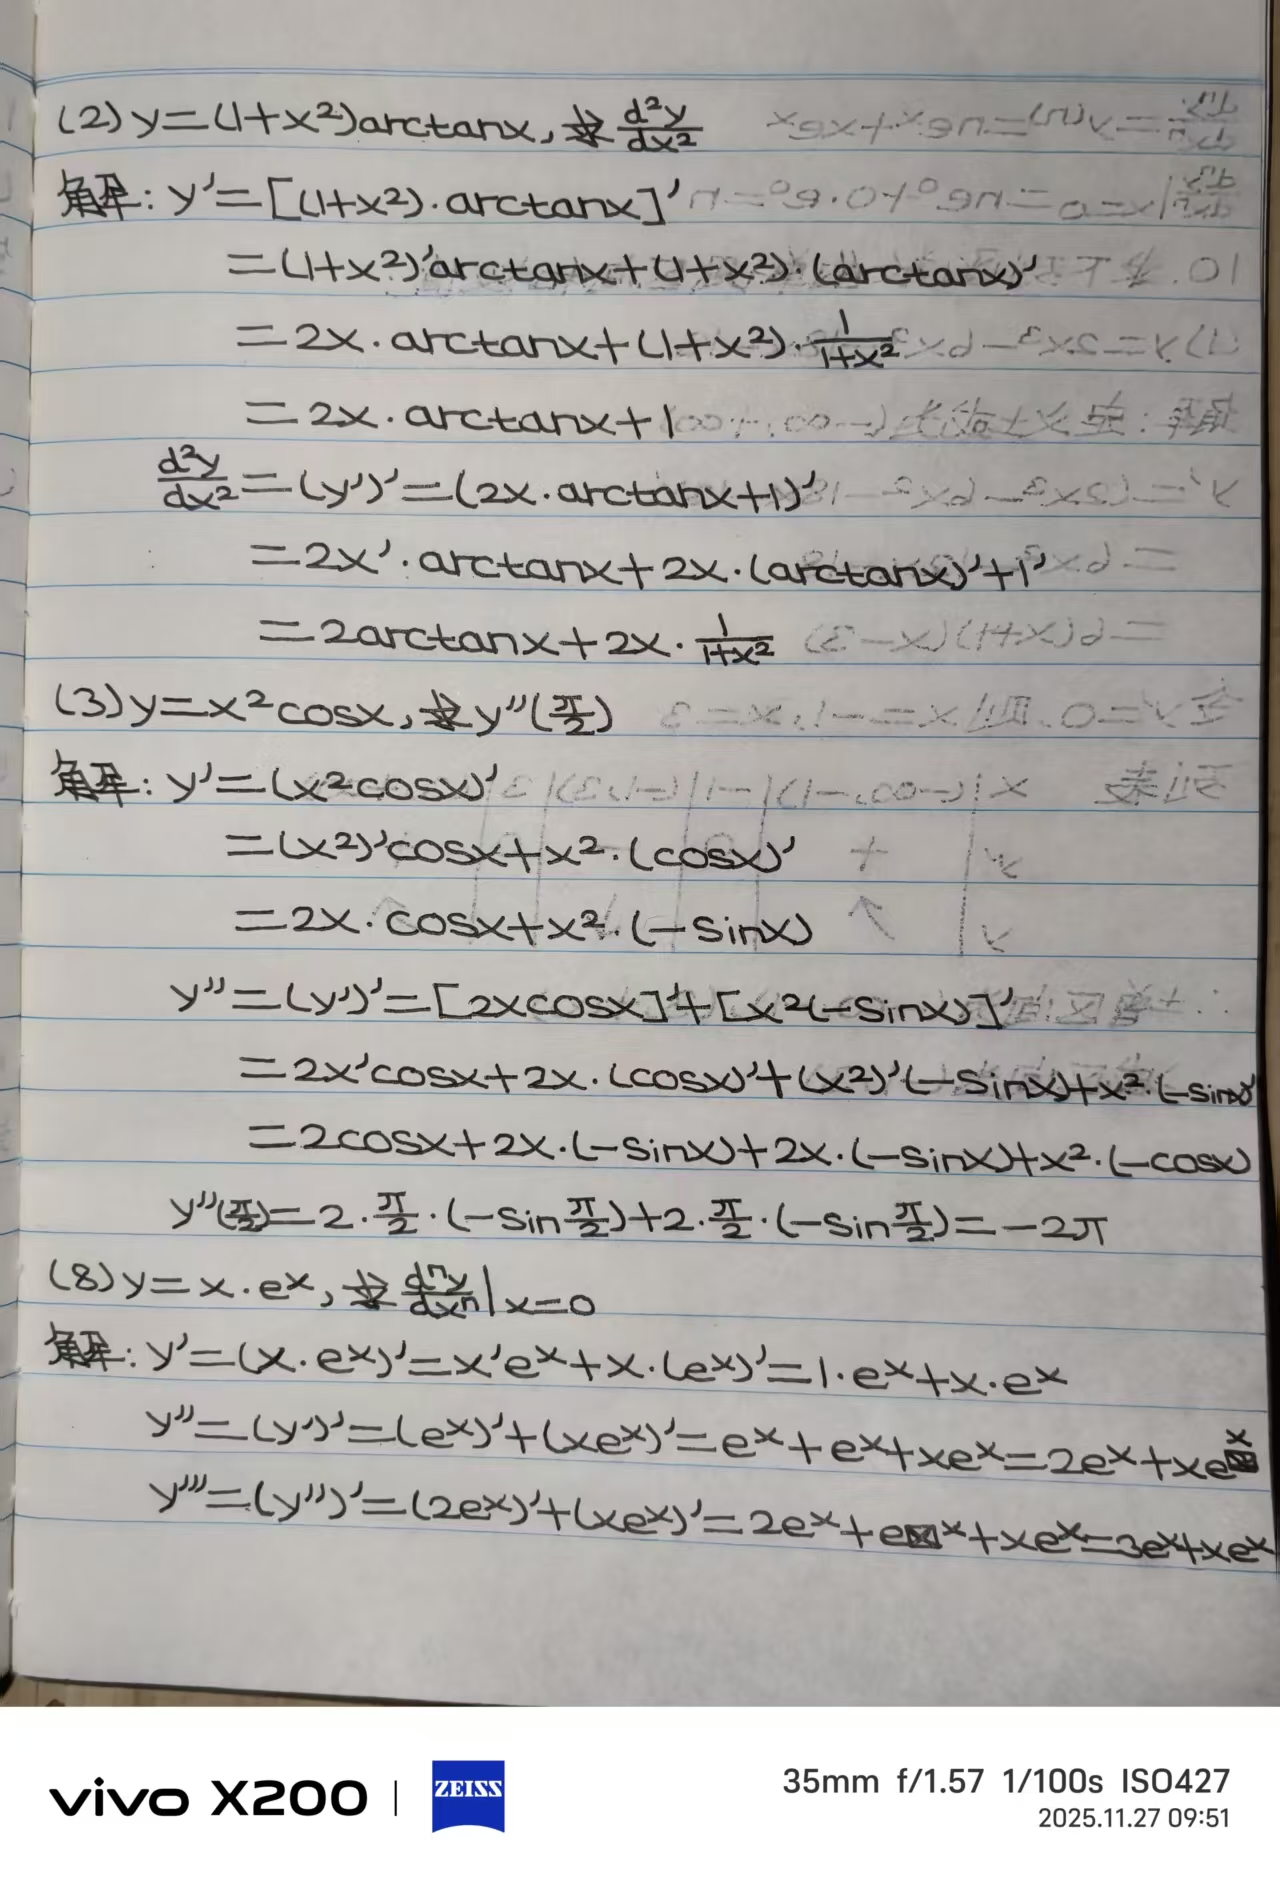 (2) y=(1+x²)arctanx, 求 d²y/dx²
解: y'=[(1+x²)·arctanx]'
=(1+x²)'arctanx+(1+x²)·(arctanx)'
=2x·arctanx+(1+x²)·1/(1+x²)
=2x·arctanx+1
d²y/dx²=(y')'=(2x·arctanx+1)'
=2x'·arctanx+2x·(arctanx)'+1'
=2arctanx+2x·1/(1+x²)
(3) y=x²cosx, 求y''(π/2)
解: y'=(x²cosx)'
=(x²)'cosx+x²·(cosx)'
=2x·cosx+x²·(-sinx)
y''=(y')'=[2xcosx]'+[x²(-sinx)]'
=2x'cosx+2x·(cosx)'+(x²)'(-sinx)+x²·(-sinx)'
=2cosx+2x·(-sinx)+2x·(-sinx)+x²·(-cosx)
y''(π/2)=2·π/2·(-sinπ/2)+2·π/2·(-sinπ/2)=-2π
(8) y=x·eˣ, 求 dⁿy/dxⁿ|x=0
解: y'=(x·eˣ)'=x'eˣ+x·(eˣ)'=1·eˣ+x·eˣ
y''=(y')'=(eˣ)'+(xeˣ)'=eˣ+eˣ+xeˣ=2eˣ+xeˣ
y'''=(y'')'=(2eˣ)'+(xeˣ)'=2eˣ+eˣ+xeˣ=3eˣ+xeˣ
vivo X200 | ZEISS
35mm f/1.57 1/100s ISO427
2025.11.27 09:51